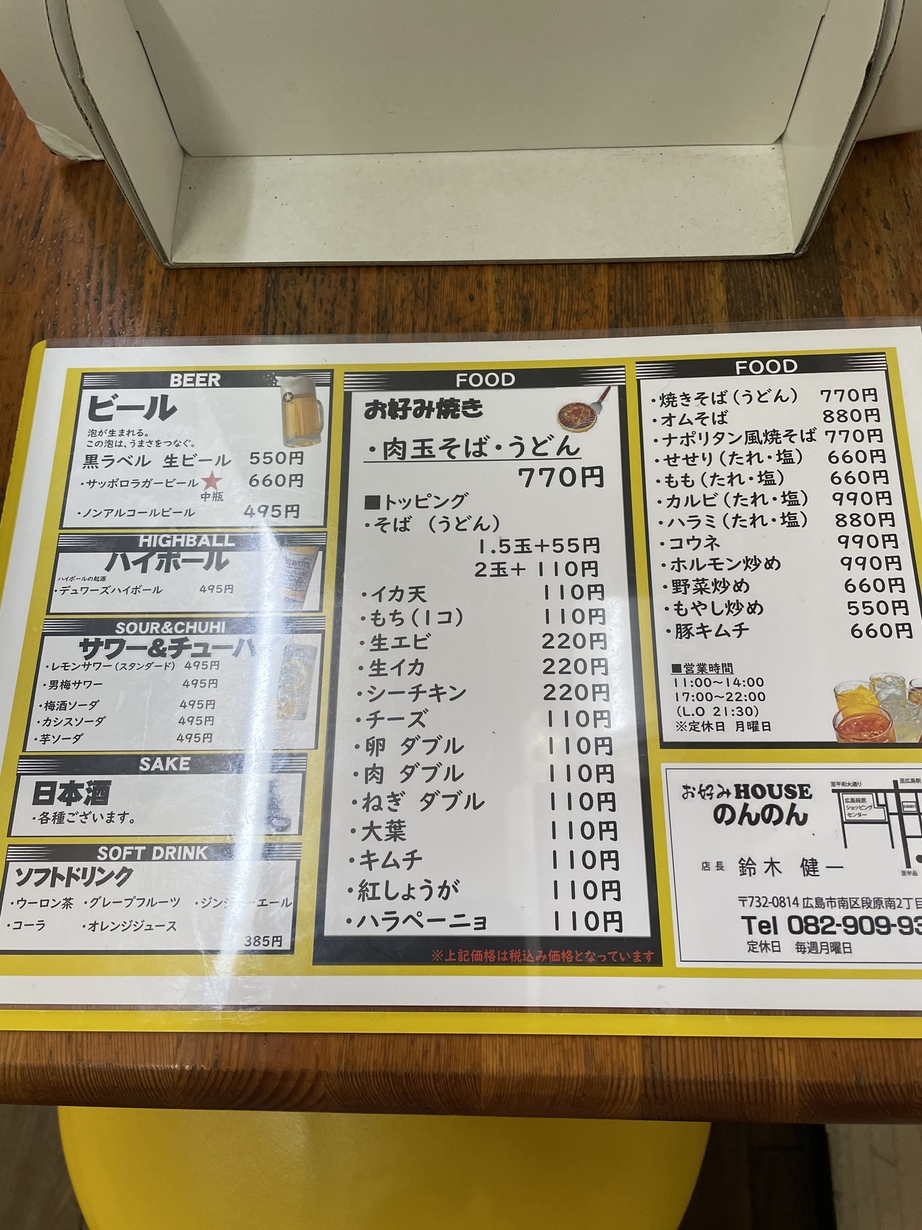 BEER
ビール
泡が生まれる。
この泡は、うまさをつなぐ。
黒ラベル 生ビール 550円
・サッポロラガービール 660円
中瓶
・ノンアルコールビール 495円
HIGHBALL
ハイボール
ハイボールの起源
・デュワーズハイボール 495円
SOUR&CHUHI
サワー&チューハ
・レモンサワー(スタンダード) 495円
・男梅サワー 495円
・梅酒ソーダ 495円
・カシスソーダ 495円
・芋ソーダ 495円
SAKE
日本酒
・各種ございます。
SOFT DRINK
ソフトドリンク
・ウーロン茶 ・グレープフルーツ ・ジンジャーエール
・コーラ ・オレンジジュース
385円
FOOD
お好み焼き
・肉玉そば・うどん
770円
■トッピング
・そば (うどん)
1.5玉+55円
2玉+110円
・イカ天 110円
・もち(1コ) 110円
・生エビ 220円
・生イカ 220円
・シーチキン 220円
・チーズ 110円
・卵 ダブル 110円
・肉 ダブル 110円
・ねぎ ダブル 110円
・大葉 110円
・キムチ 110円
・紅しょうが 110円
・ハラペーニョ 110円
※上記価格は税込み価格となっています
FOOD
・焼きそば(うどん) 770円
・オムそば 880円
・ナポリタン風焼そば 770円
・せせり(たれ・塩) 660円
・もも(たれ・塩) 660円
・カルビ(たれ・塩) 990円
・ハラミ(たれ・塩) 880円
・コウネ 990円
・ホルモン炒め 990円
・野菜炒め 660円
・もやし炒め 550円
・豚キムチ 660円
■営業時間
11:00〜14:00
17:00〜22:00
(L.O 21:30)
※定休日 月曜日
お好みHOUSE
のんのん
至平和大通り
至広島駅
広島段原
ショッピング
センター
店長 鈴木 健一
〒732-0814 広島市南区段原南2丁目
Tel 082-909-93
定休日 毎週月曜日